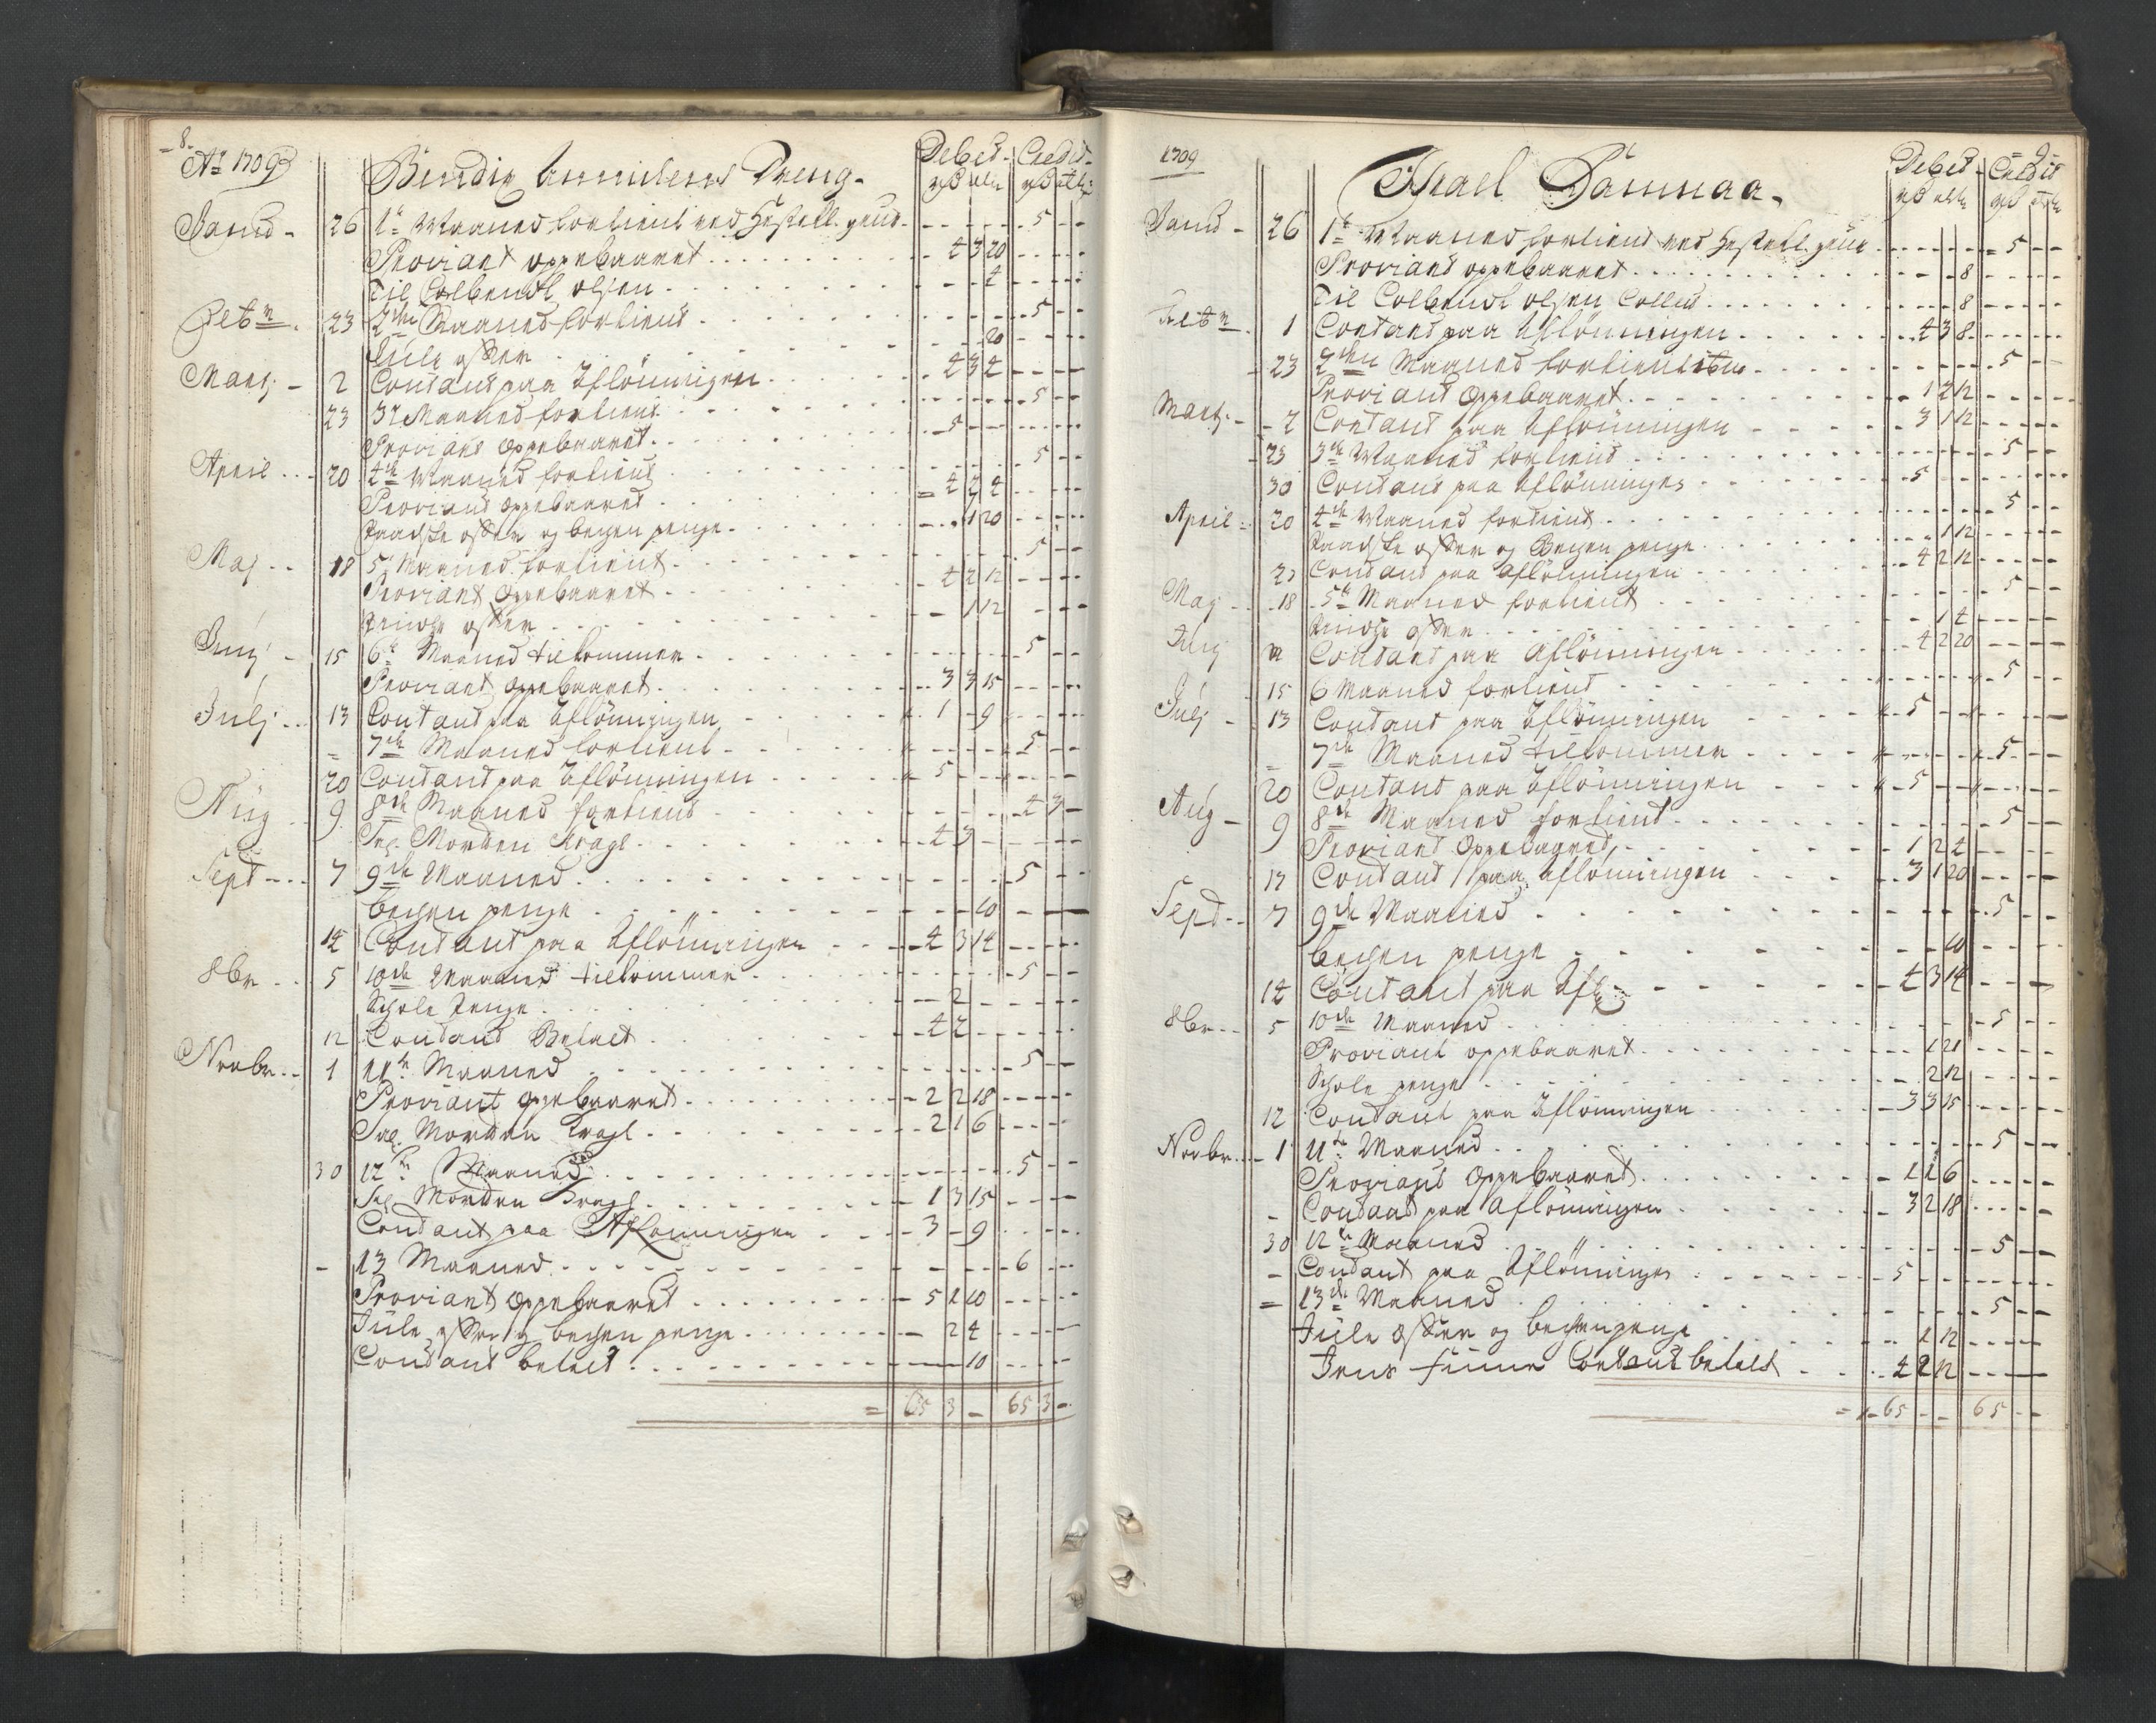 - 8 -
Ao 1709 Debet - Credit -
Janu - 26 1te Maaned fortient ved - - 5 - -
Proviant oppebaaret - 4 3 20
Til Colbendt olsen - - - 4
Febr. 23 2den Maaned fortient - 5 - -
Jule offer - - 20
Marti - 2 Contant paa Aflönningen - 4 3 4
23 3de Maaned fortient - 5 - -
Proviant oppebaaret - 5 - -
April - 20 4de Maaned fortient - 5 - -
Proviant oppebaaret
Paaske offer og bechen penge - 1 20
Maj - 18 5te Maaned fortient - 5 - -
Proviant oppebaaret - 4 2 12
Pindtze offer - 1 12
Junj - 15 6te Maaned tilkommer - 5 - -
Proviant oppebaaret - 3 3 15
Julj - 13 Contant paa Aflönningen - 1 - 9
= 7de Maaned fortient - 5 - -
20 Contant paa Aflönningen - 5 - -
Aug 9 8de Maaned fortient - 4 3 -
Morten Kragl - 4 3 -
Sept - 7 9de Maaned - 5 - -
bechen penge - - 10
14 Contant paa Aflönningen - 4 3 14
8br - 5 10de Maaned tilkommer - 5 - -
Schole penge - 2 -
12 Contant Betalt - 4 2 -
Novbr - 1 11te Maaned - 5 - -
Proviant oppebaaret - 2 2 18
Morten Kragl - 2 1 6
30 12te Maaned - 5 - -
Morten Kragh - 1 3 15
Contant paa Aflönningen - 3 - 9
- 13 Maaned - 6 - -
Proviant oppebaaret - 5 1 10
Jule offer og bechen penge - 2 4
Contant betalt - - 10
= 65 3 - 65 3 -
- 9 -
1709 Israel Damnaa - Debet - Credit
Janu - 26 1te Maaned fortient ved - 5 - -
Proviant oppebaaret - - 8
Til Colbendt olsen - - 8
Febr. 1 Contant paa Aflönningen - 4 3 8
- 23 2den Maaned fortient - 5 - -
Proviant Oppebaaret - 1 2 12
Marti - 2 Contant paa Aflönningen - 3 1 12
- 23 3de Maaned fortient - 5 - -
30 Contant paa Aflönningen - 5
April - 20 4de Maaned fortient - 5 - -
Paaske offer og Bechen penge - 1 12
Contant paa Aflönningen - 4 2 12
Maj - 18 5te Maaned fortient - 5 - -
Pindtze offer - 1 4
Junj Contant paa Aflönningen - 4 2 20
15 6 Maaned fortient - 5 - -
Julj - 13 Contant paa Aflönningen - 5 - -
= 7de Maaned tilkommer - 5 - -
20 Contant paa Aflönningen - 5 - -
Aug - 9 8de Maaned fortient - 5 - -
Proviant Oppebaaret - 1 2 4
17 Contant paa Aflönningen - 3 1 20
Sept - 7 9de Maaned - 5 - -
bechen penge - - 10
14 Contant paa Afl - 4 3 14
8br - 5 10de Maaned - 5 - -
Proviant oppebaaret - 1 21
Schole penge - 2 12
12 Contant paa Aflönningen - 3 3 15
Novbr - 1 11te Maaned - 5 - -
Proviant Oppebaaret - 1 1 6
- Contant paa Aflönningen - 3 2 18
30 12te Maaned - 5 - -
- Contant paa Aflönningen - 5 - -
= 13de Maaned - 5 - -
Jule offer og bechenpenge - 1 12
Contant betalt - 4 2 12
= 65 - - 65 - -